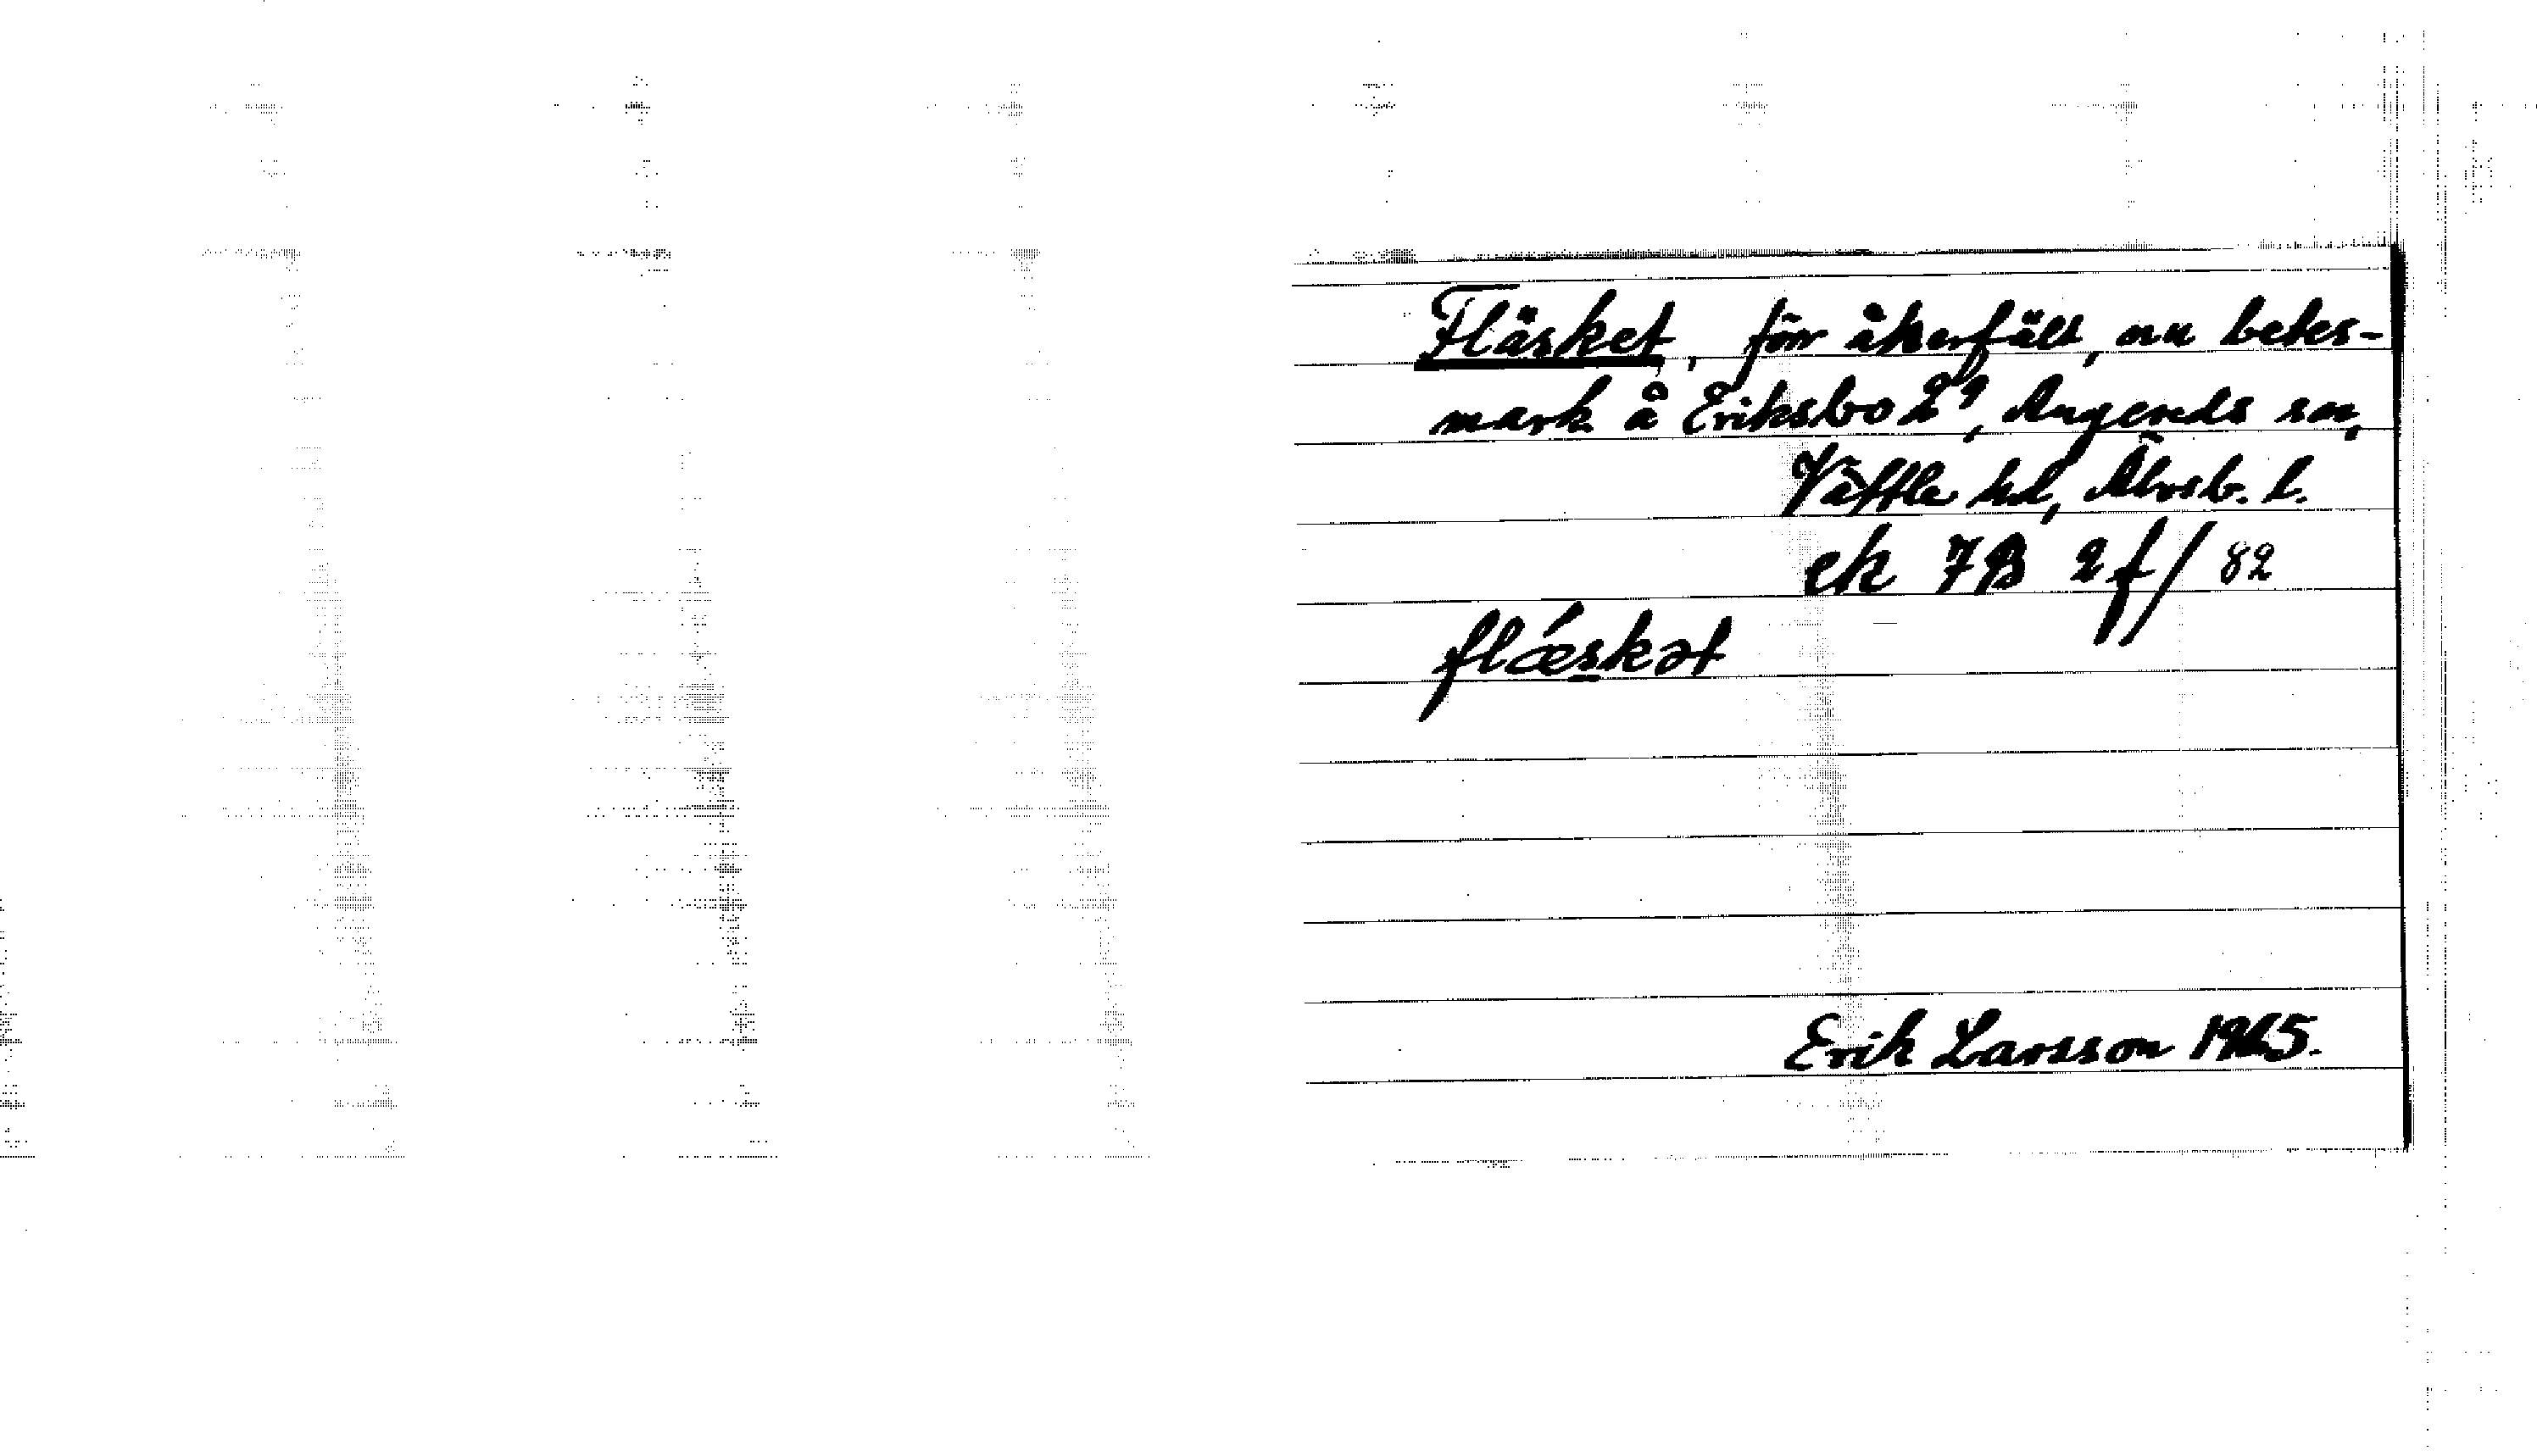 Fläsket, förr åkerfält, nu betes-
mark å Eriksbo 2⁹, Angereds sn,
Vättle hd, Älvsb. l.
ek 7B 2f/82
flǽskət
Erik Larsson 1965.